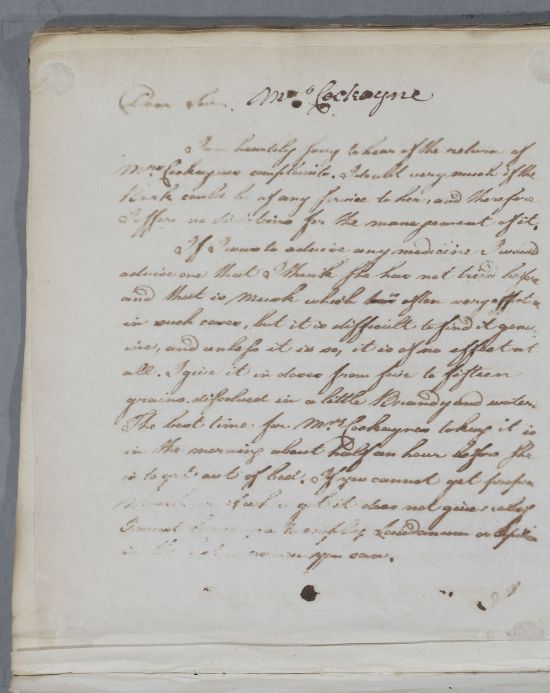 Dear Sir, Mrs Cockayne
I am heartily sorry to hear of the return of
Mrs Cockaynes complaints. I doubt very much if the
Bark could be of any service to her, and therefore
I offer no directions for the management of it.
If I was to advise any medicine I would
advise one that I think she has not tried before
and that is Musk which is often very
in such cases, but it is difficult to find it genu-
ine, and unless it is so, it is of no effect at
all. I give it in doses from five to fifteen
grains, dissolved in a little Brandy and water.
The best time for Mrs Cockaynes taking it is
in the morning about half an hour before she
is to get out of bed. If you cannot get proper
Musk get it does not give relief
I must to employ Laudanum or
in the you can.